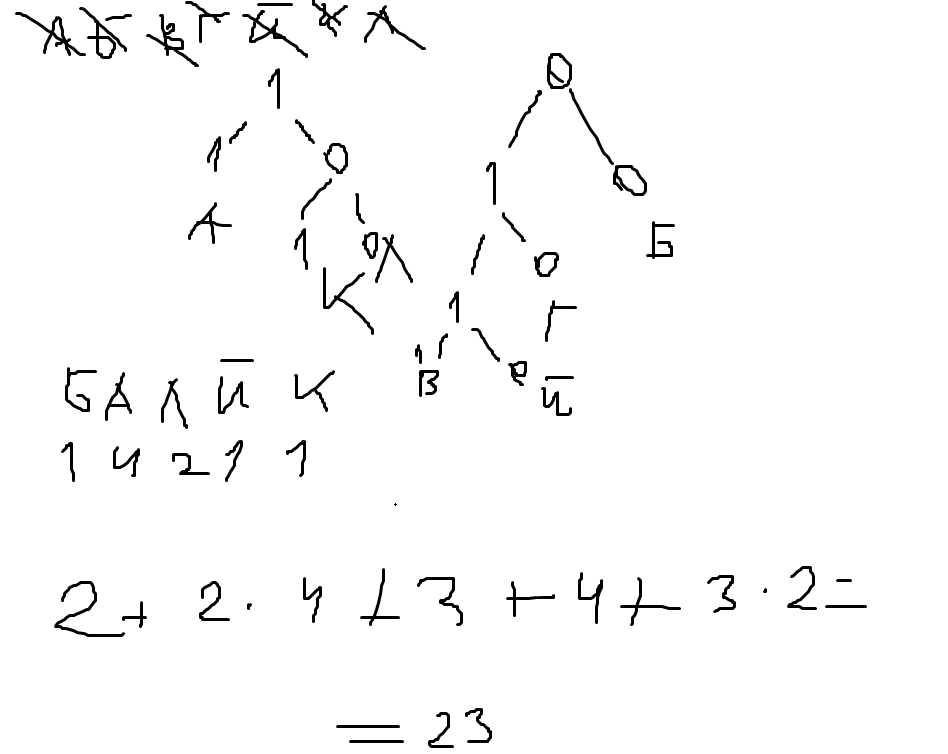 А Б В Г Й К Л
1 0
1 0 1 0
А 1 0 Л 0 Б
К 1 Г
1 0
В Й
Б А Л Й К
1 4 2 1 1
2 + 2 · 4 + 3 + 4 + 3 · 2 =
= 23